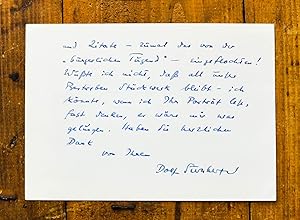 und Zitate – zumal das von der
„bürgerlichen Tugend" – eingeflochten!
Wüßte ich nicht, daß all unser
Bestreben Stückwerk bleibt – ich
könnte, wenn ich Ihr Porträt lese,
fast denken, es wäre mir was
gelungen. Haben Sie herzlichen
Dank
von Ihrem
Dolf Sternberger